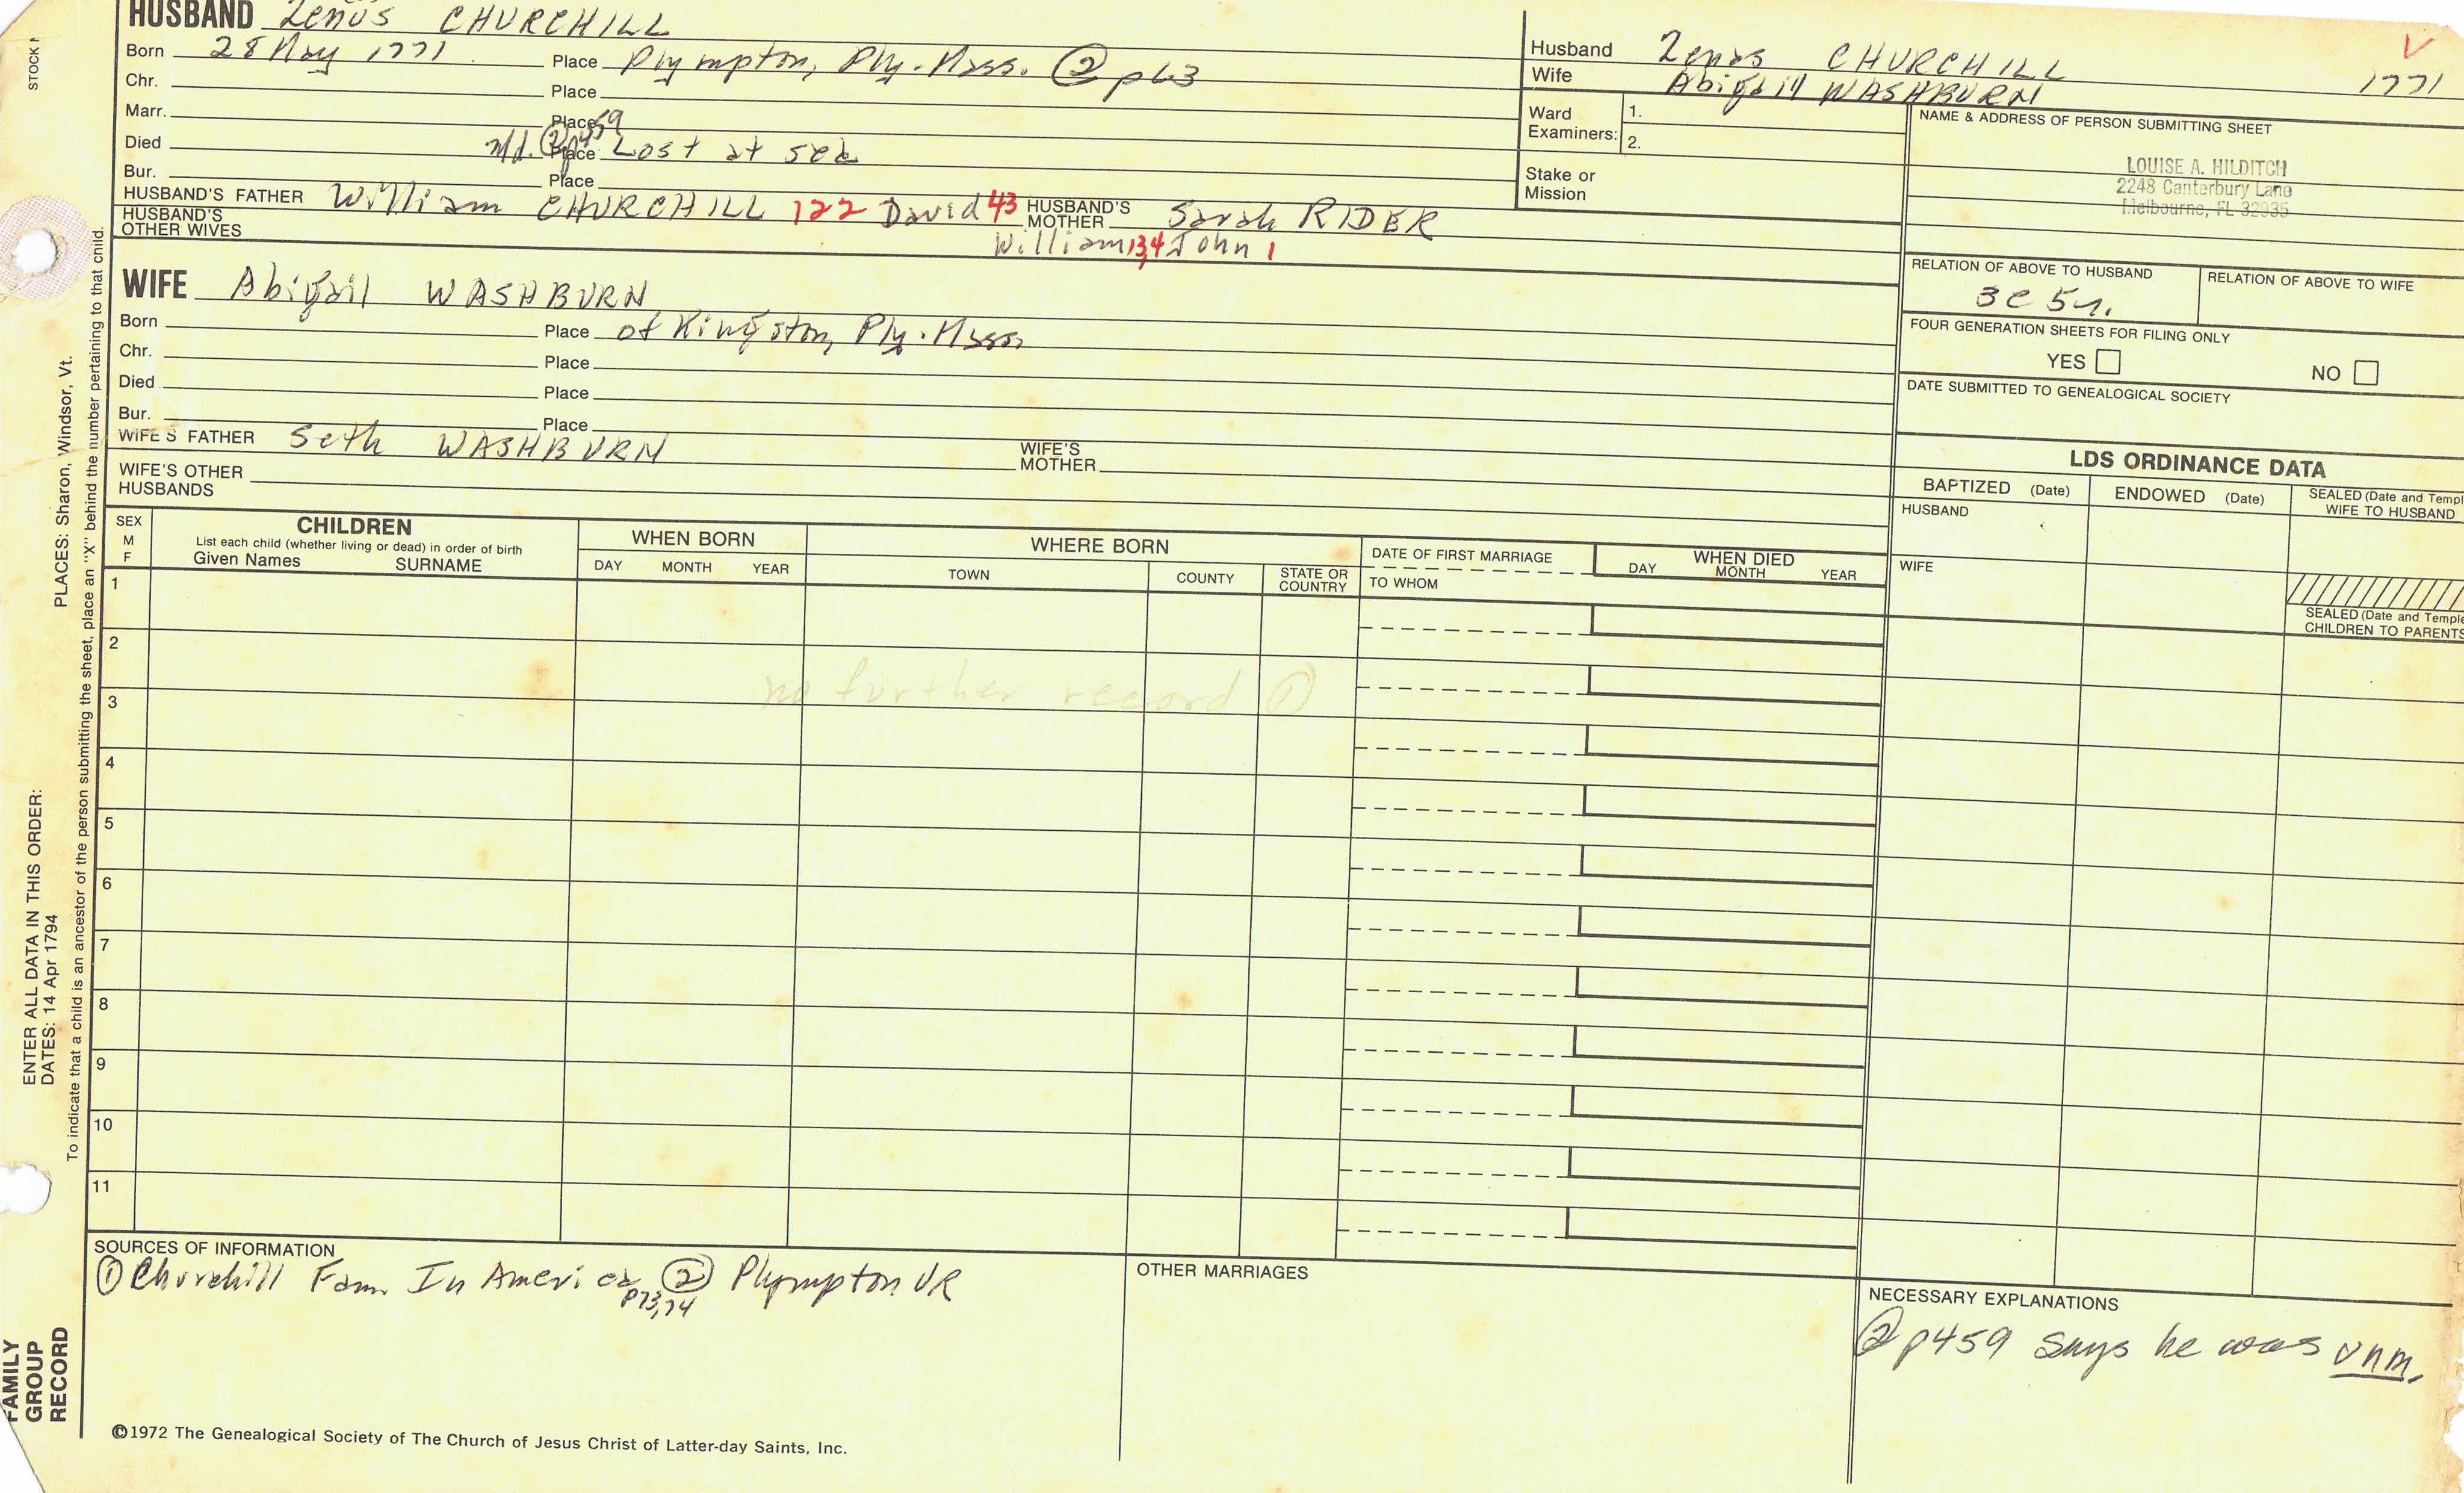 HUSBAND Zenas CHURCHILL
Born 28 May 1771 Place Plympton, Ply. Mass. ② p63
Chr. Place
Marr. Place
Died n/d. ② p459 Place Lost at sea
Bur. Place
HUSBAND'S FATHER William CHURCHILL 122 David 43 HUSBAND'S MOTHER Sarah RIDER
HUSBAND'S OTHER WIVES William 13,4 John 1
WIFE Abigail WASHBURN
Born Place of Kingston, Ply. Mass.
Chr. Place
Died Place
Bur. Place
WIFE'S FATHER Seth WASHBURN WIFE'S MOTHER
WIFE'S OTHER HUSBANDS
Husband Zenas CHURCHILL V
Wife Abigail WASHBURN 1771
Ward Examiners: 1.
2.
Stake or Mission
NAME & ADDRESS OF PERSON SUBMITTING SHEET
LOUISE A. HILDITCH
2248 Canterbury Lane
Melbourne, FL 32935
RELATION OF ABOVE TO HUSBAND RELATION OF ABOVE TO WIFE
3c 5r.
FOUR GENERATION SHEETS FOR FILING ONLY
YES NO
DATE SUBMITTED TO GENEALOGICAL SOCIETY
LDS ORDINANCE DATA
BAPTIZED (Date) ENDOWED (Date) SEALED (Date and Templ
WIFE TO HUSBAND
HUSBAND
WIFE
SEALED (Date and Temple
CHILDREN TO PARENTS
SEX
M
F
CHILDREN
List each child (whether living or dead) in order of birth
Given Names SURNAME
WHEN BORN
DAY MONTH YEAR
WHERE BORN
TOWN COUNTY STATE OR COUNTRY
DATE OF FIRST MARRIAGE
TO WHOM
WHEN DIED
DAY MONTH YEAR
1
2
no further record ①
3
4
5
6
7
8
9
10
11
SOURCES OF INFORMATION
① Churchill Fam. In America ② Plympton VR
p73,74
OTHER MARRIAGES
NECESSARY EXPLANATIONS
② p459 says he was unm.
©1972 The Genealogical Society of The Church of Jesus Christ of Latter-day Saints, Inc.
STOCK
PLACES: Sharon, Windsor, Vt.
ENTER ALL DATA IN THIS ORDER:
DATES: 14 Apr 1794
To indicate that a child is an ancestor of the person submitting the sheet, place an "X" behind the number pertaining to that child.
FAMILY
GROUP
RECORD